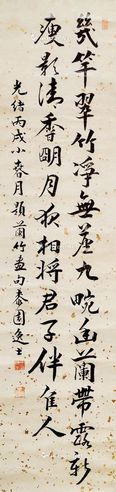 几竿翠竹淨無塵九畹幽蘭帶露新
瘦影清香明月夜相將君子伴佳人
光緒丙戌小春月題蘭竹画句泰園逸士